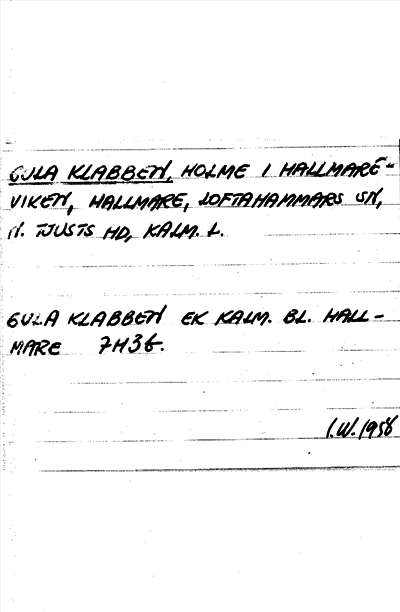 GULA KLABBEN, HOLME I HALLMARE-
VIKEN, HALLMARE, LOFTAHAMMARS SN,
N. TJUSTS HD, KALM. L.
GULA KLABBEN EK KALM. BL. HALL-
MARE 7H3g.
I.W. 1958